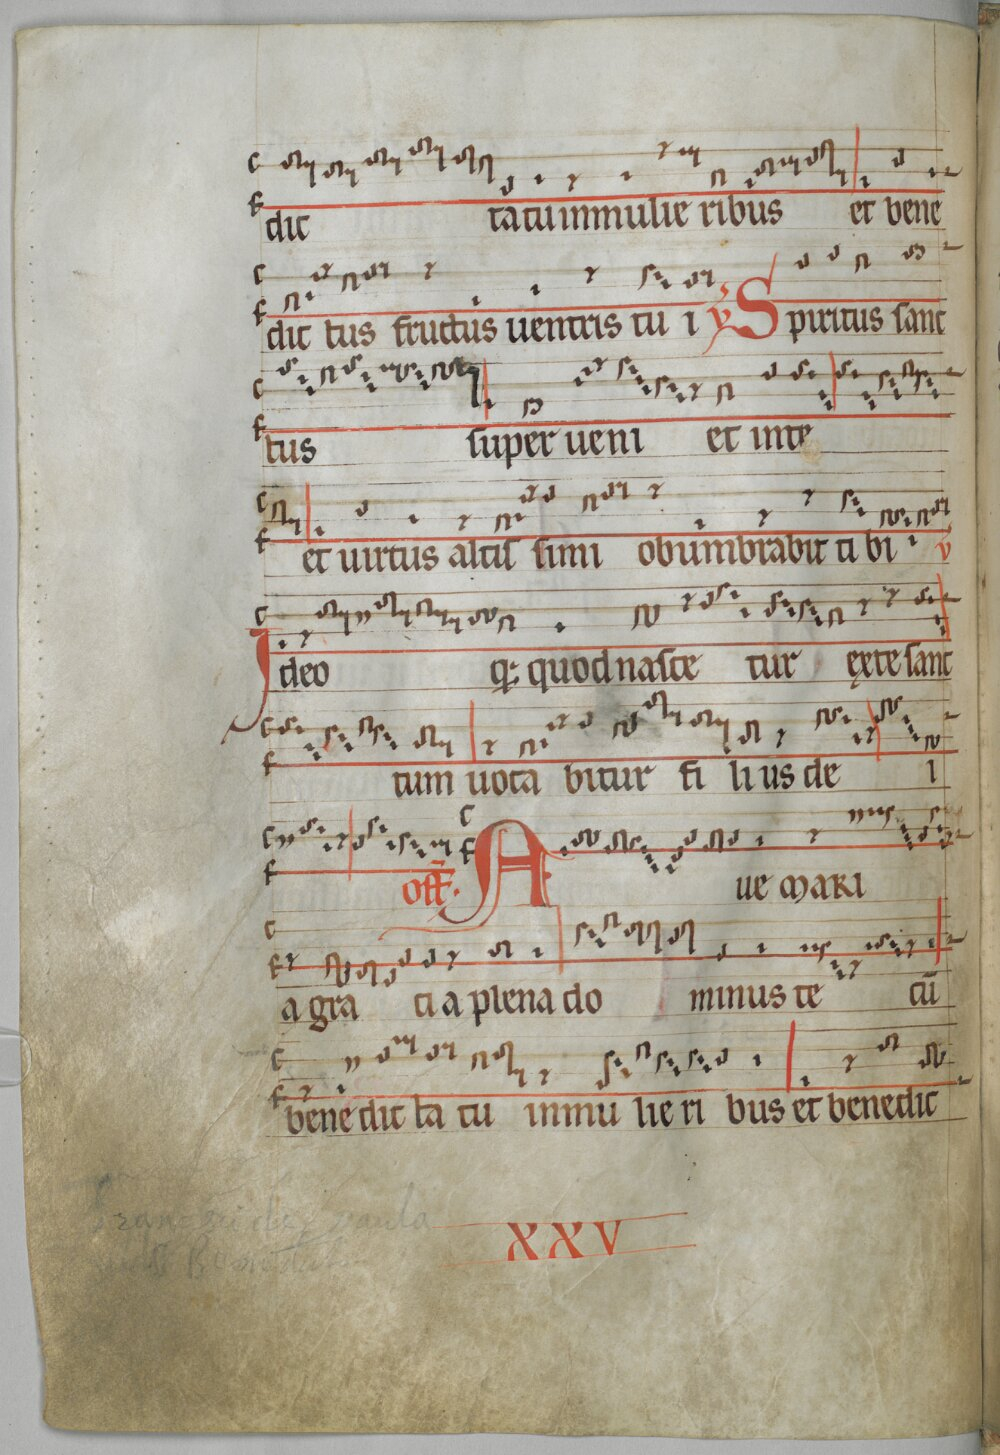 dic ta tu in mulie ribus et bene
dic tus fructus uentris tu i ℣ Spiritus sanc
tus super ueni et in te
et uirtus altis simi obumbrabit ti bi ℣
Ideo q: quod nasce tur ex te sanc
tum uoca bitur fi li us de i
off̄. A ue mari
a gra ci a plena do minus te cū
bene dic ta tu in mu lie ri bus et benedic
XXV